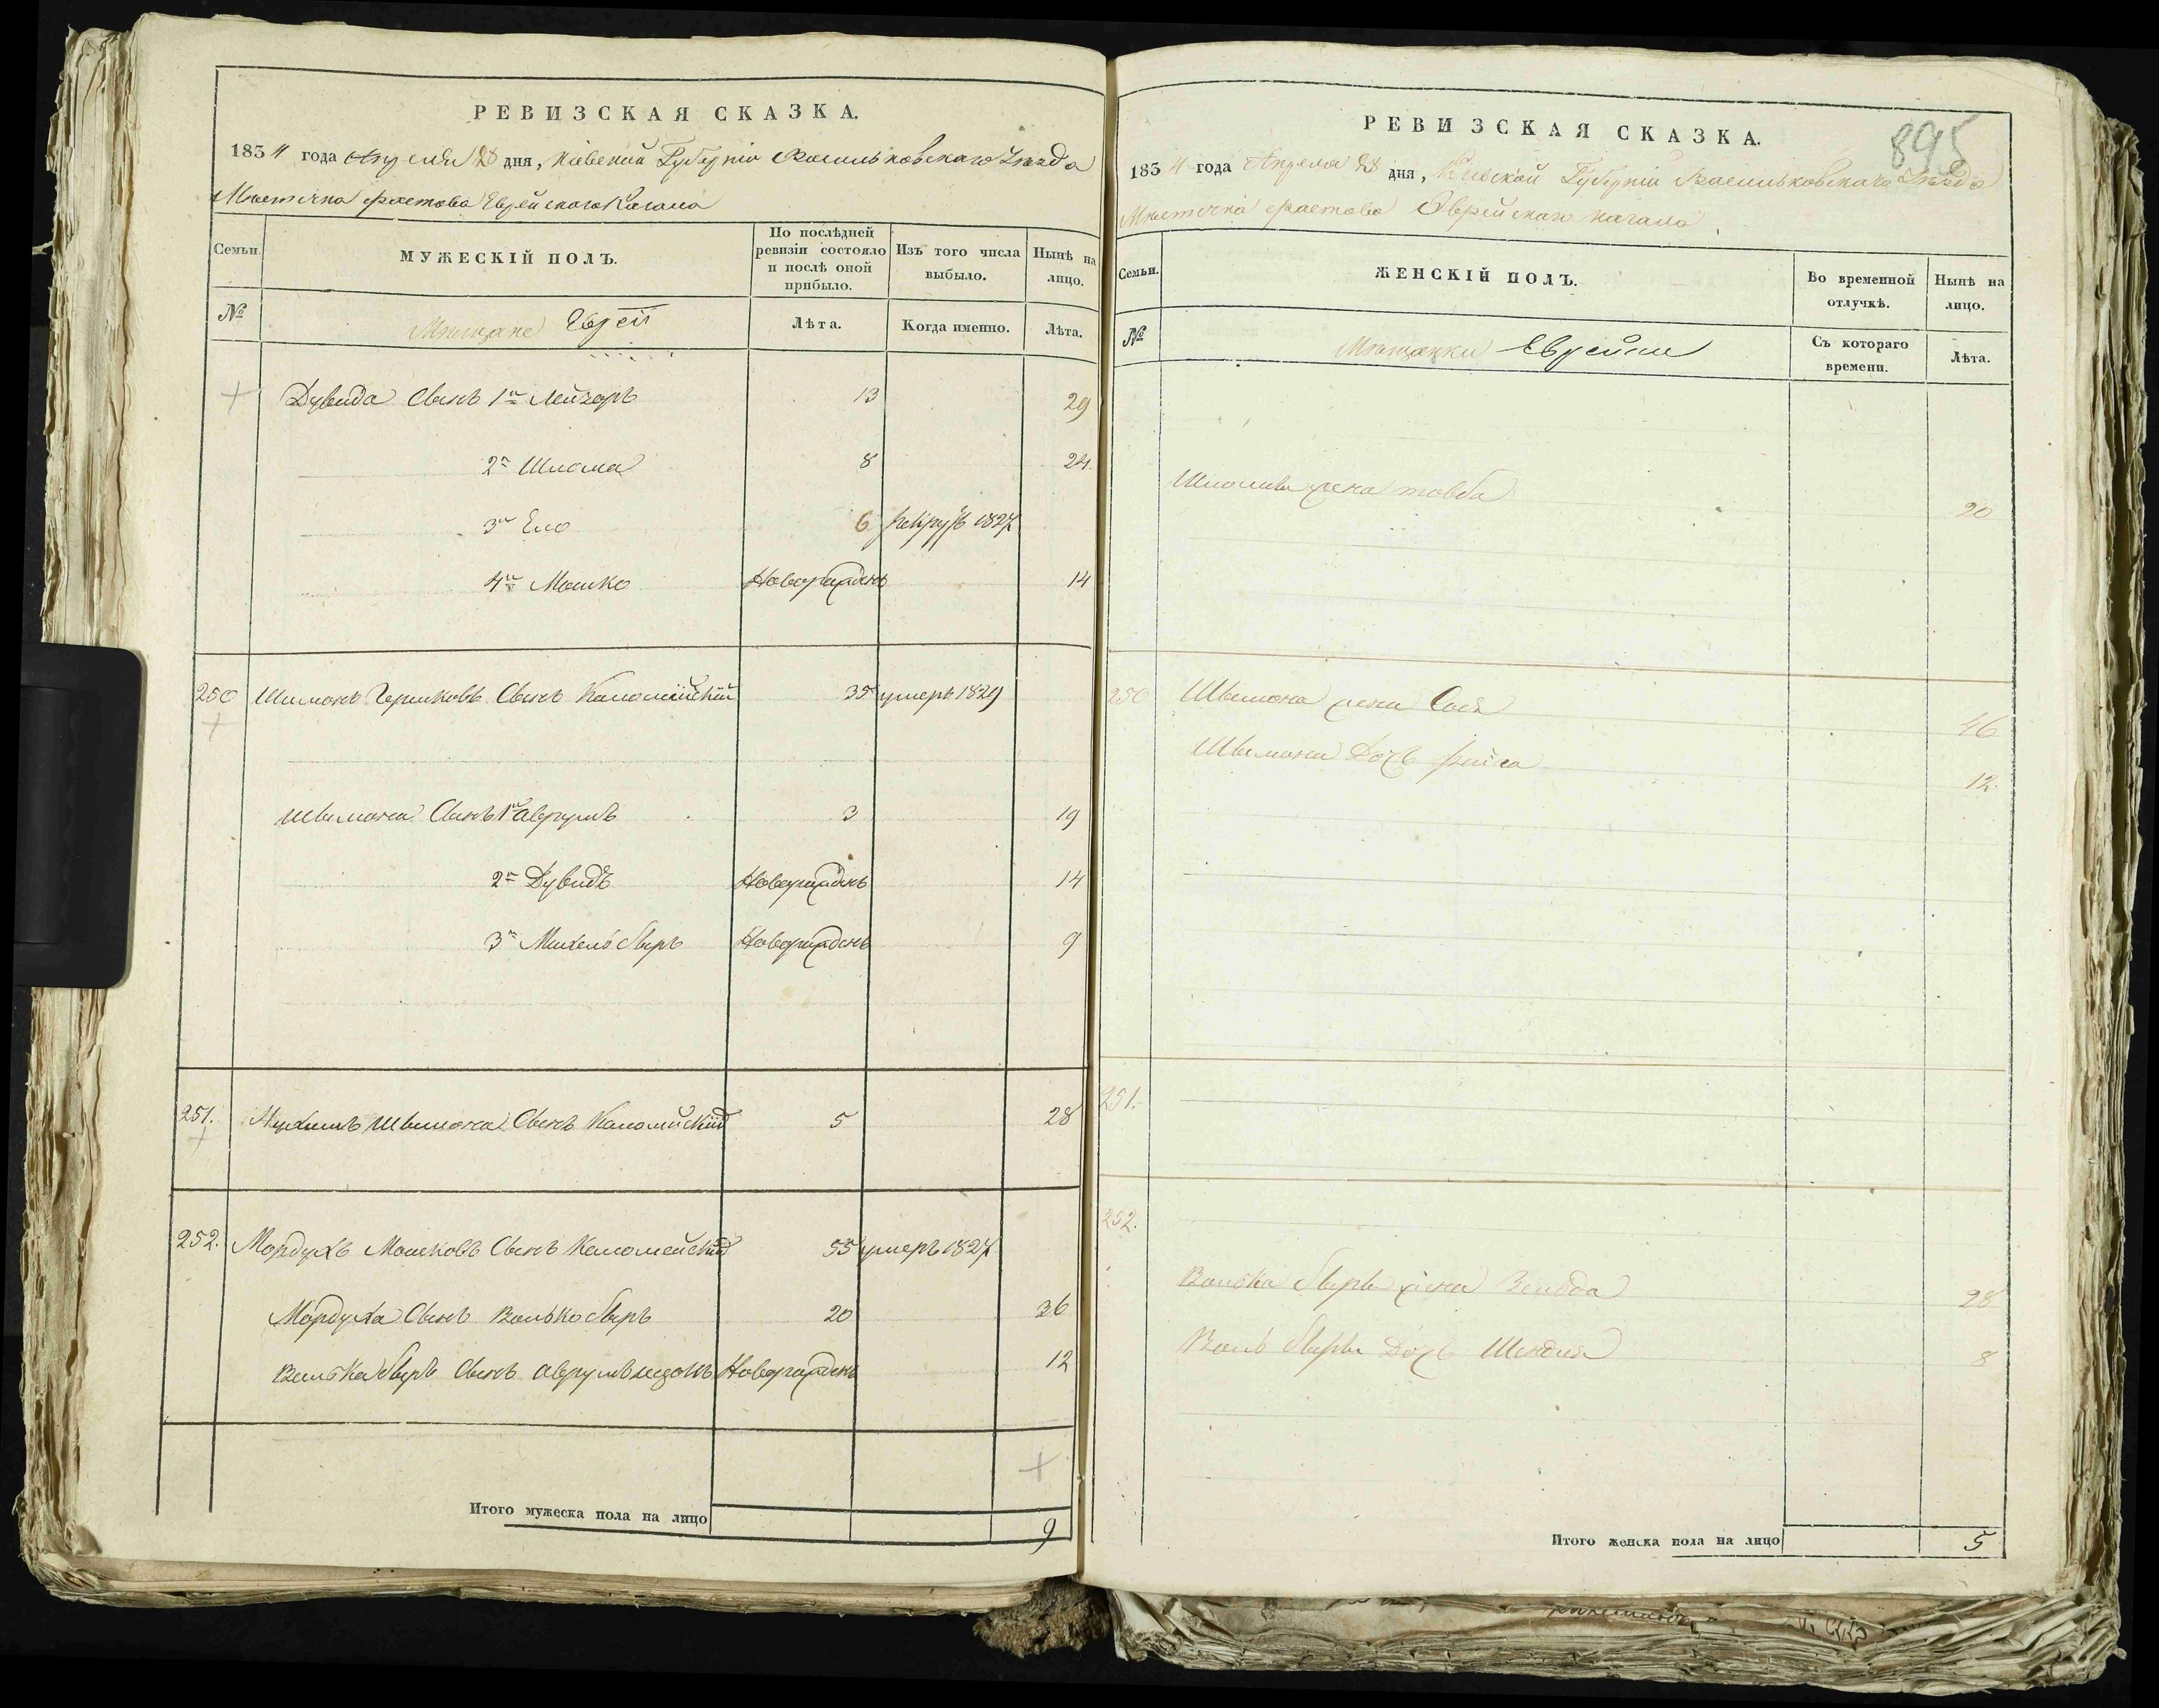 РЕВИЗСКАЯ СКАЗКА.
1834 года Апреля 28 дня, Кіевской Губерніи Васильковскаго Уѣзда
Мѣстечка Фастова Еврейскаго Кагала
Семьи.
МУЖЕСКІЙ ПОЛЪ.
По послѣдней ревизіи состояло и послѣ оной прибыло.
Изъ того числа выбыло.
Нынѣ на лицо.
№
Мѣщане Евреи
Лѣта.
Когда именно.
Лѣта.
Дувида Сынъ 1й Лейзоръ 13 29
2й Шлома 8 24.
3й Ело 6 рекрутъ 1827
4й Мошко Новорожденъ 14
250 Шимонъ Гершковъ Сынъ Каломійскій 35 умеръ 1829
Швимона Сынъ 1й Аврумъ 3 19
2й Дувидъ Новорожденъ 14
3й Михель Беръ Новорожденъ 9
251. Нухимъ Швимона Сынъ Каломийскій 5 28
252. Мордухъ Мошковъ Сынъ Каломейскій 55 умеръ 1827
Мордуха Сынъ Волько Беръ 20 36
Волька Беръ Сынъ Аврумъ Новорожденъ 12
Итого мужеска пола на лицо 9
895
РЕВИЗСКАЯ СКАЗКА.
1834 года Апреля 28 дня, Кіевской Губерніи Васильковскаго Уѣзда
Мѣстечка Фастова Еврейскаго кагала
Семьи.
ЖЕНСКІЙ ПОЛЪ.
Во временной отлучкѣ.
Нынѣ на лицо.
№
Мѣщанки Еврейки
Съ котораго времени.
Лѣта.
Шломы жена товба 20
250 Швимона жена Сося 46
Швимона Дочь Рейса 12.
251.
252.
Волька Бера жена 28
Воль Бера Дочь Шендля 8
Итого женска пола на лицо 5